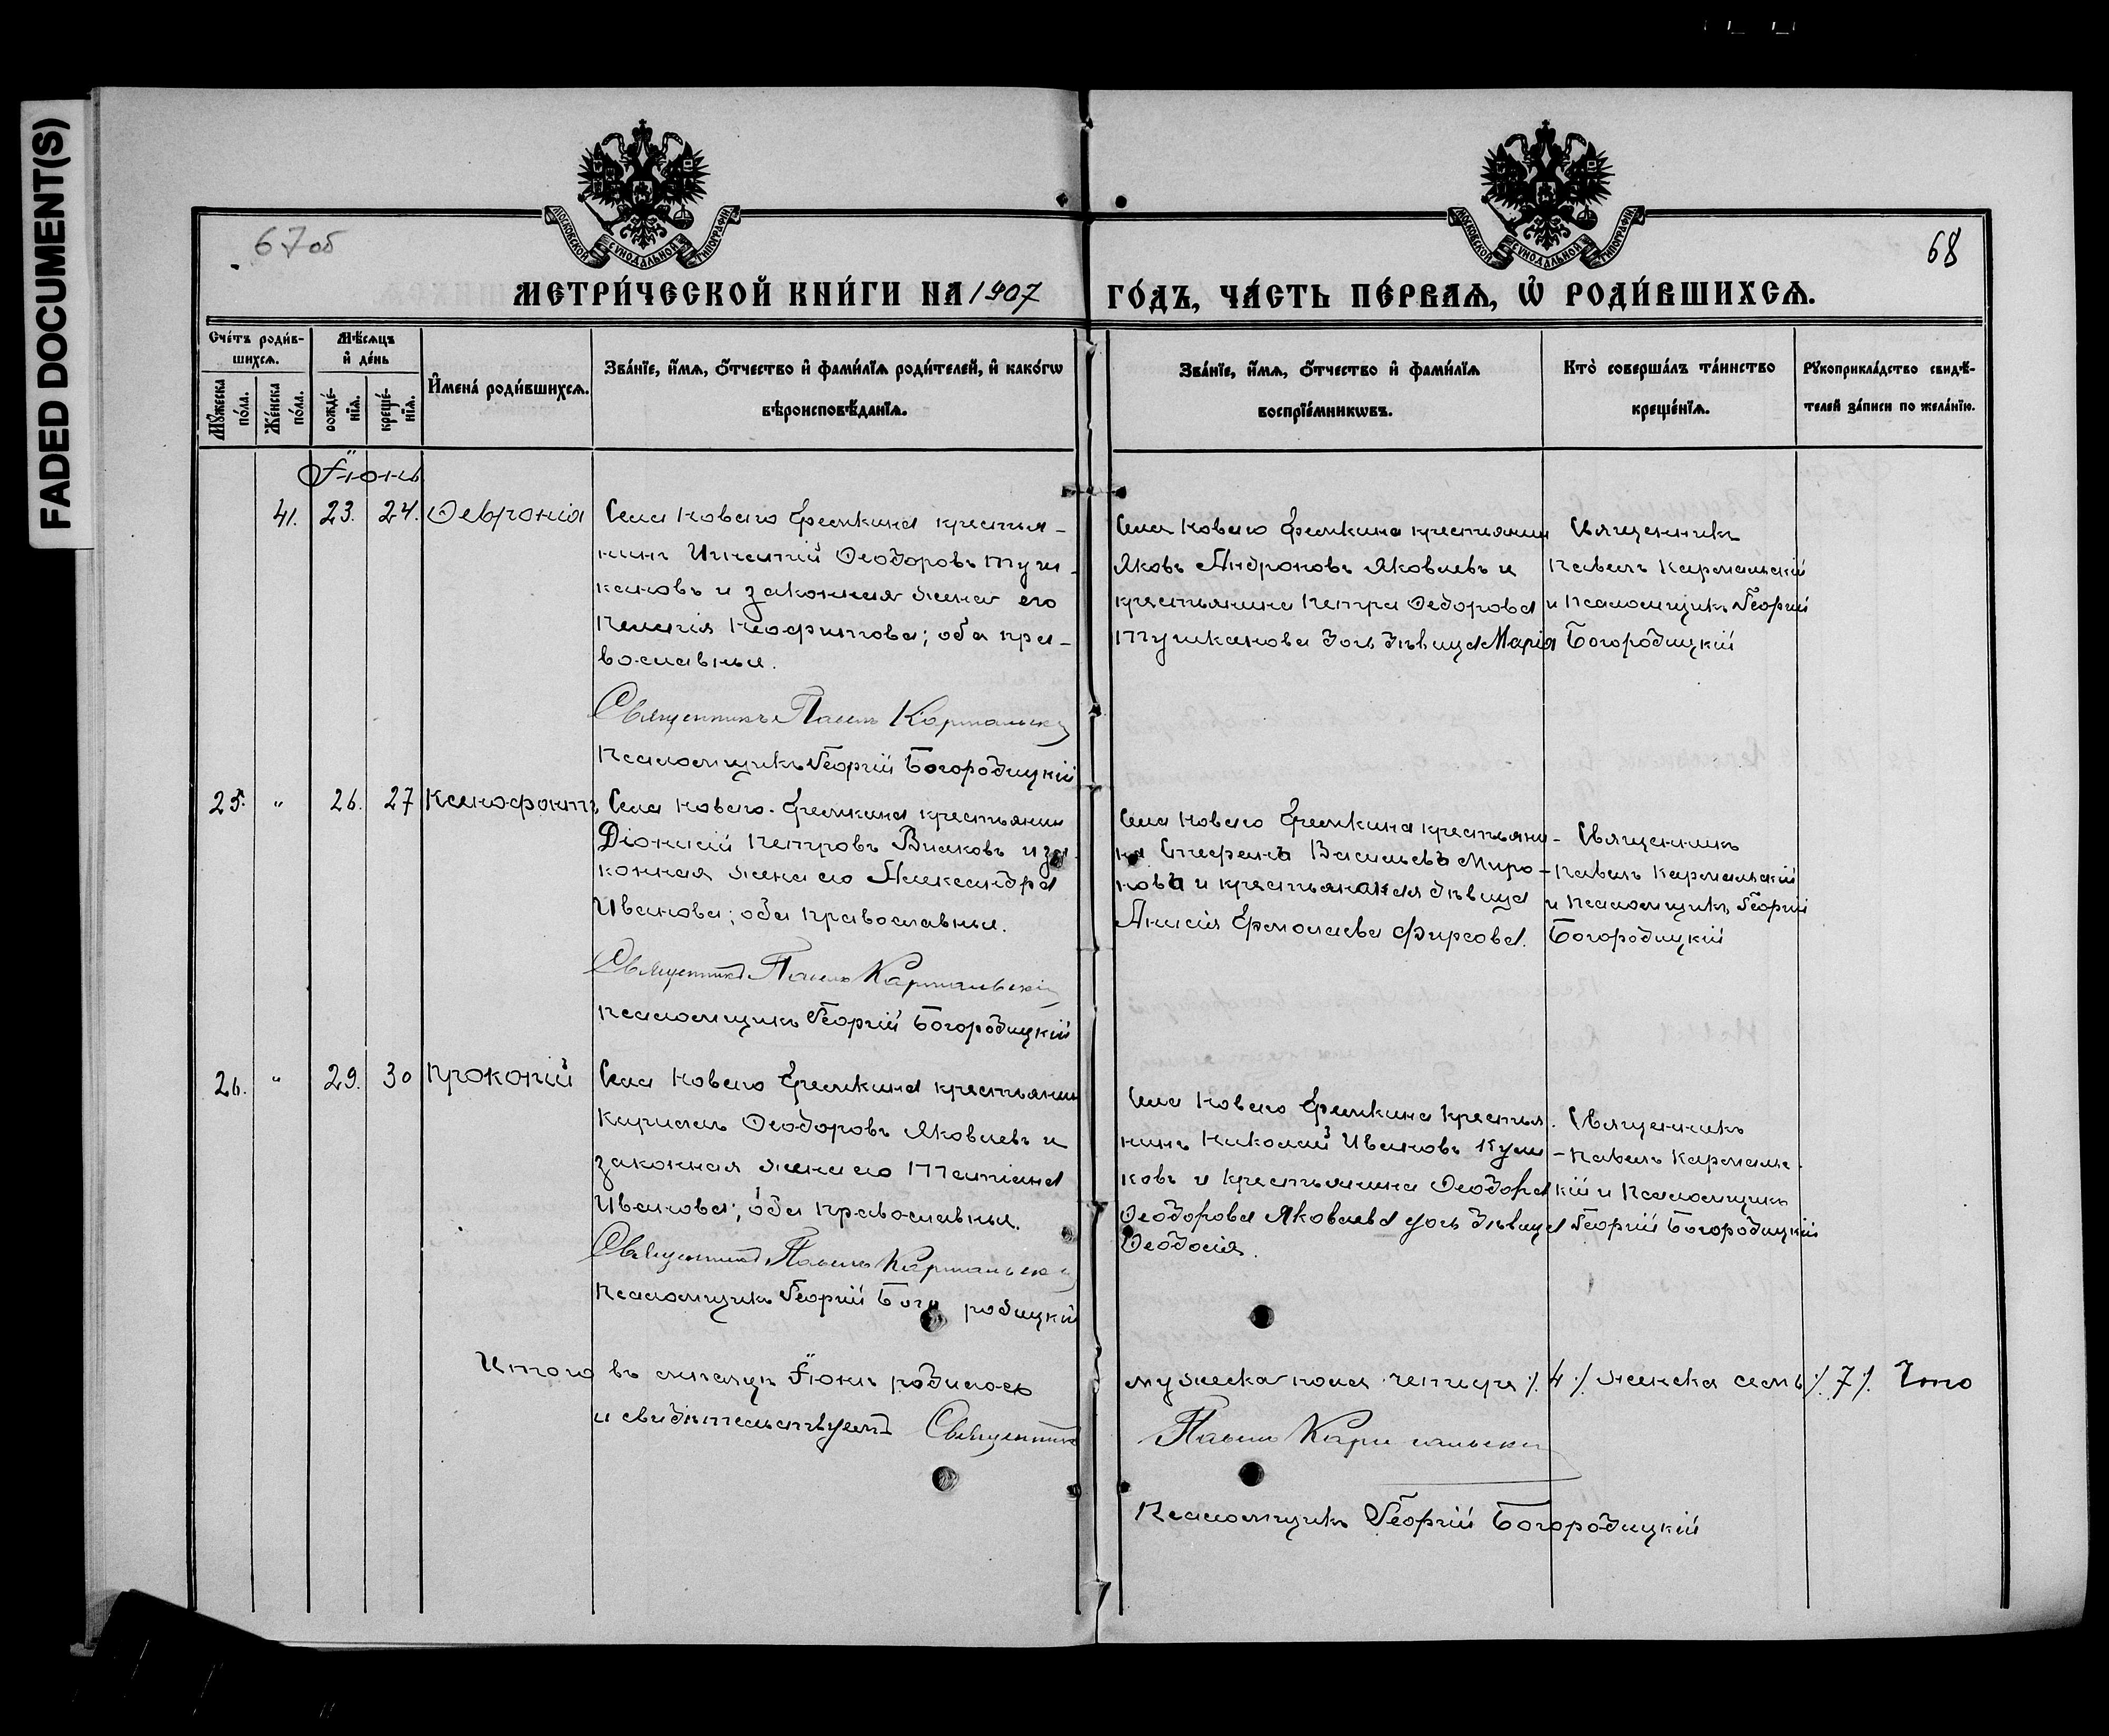 FADED DOCUMENT(S)
МОСКОВСКОЙ СУНОДАЛЬНОЙ ТИПОГРАФІИ
МОСКОВСКОЙ СУНОДАЛЬНОЙ ТИПОГРАФІИ
67 об
68
МЕТРИ́ЧЕСКОЙ КНИ́ГИ НА 1907 ГО́ДЪ, ЧА́СТЬ ПЕ́РВАѦ, Ѡ҆ РОДИ́ВШИХСѦ.
Сче́тъ роди́в-
шихсѧ.
Мꙋ́жеска
по́ла.
Же́нска
по́ла.
Мѣ́сѧцъ
и҆ де́нь
рожде́-
нїѧ.
креще́-
нїѧ.
И҆мена̀ роди́вшихсѧ.
Зва́нїе, и҆́мѧ, ѻ҆́тчество и҆ фами́лїѧ роди́телей, и҆ како́гѡ
вѣроисповѣ́данїѧ.
Зва́нїе, и҆́мѧ, ѻ҆́тчество и҆ фами́лїѧ
воспрїе́мникѡвъ.
Кто̀ соверша́лъ та́инство
креще́нїѧ.
Рꙋкоприкла́дство свидѣ́-
телей за́писи по жела́нїю.
Іюнь
41. 23. 24. Ѳевронія
Села Новаго Еремкина крестья-
нинъ Игнатій Ѳеодоровъ Туш-
кановъ и законная жена его
Пелагія Неофитова; оба пра-
вославные.
Священникъ Павелъ Кармальскій
Псаломщикъ Георгій Богородицкій
Села Новаго Еремкина крестьянин
Яковъ Андроновъ Яковлевъ и
крестьянина Петра Ѳедорова
Тушканова дочь дѣвица Марія
Священникъ
Павелъ Кармальскій
и Псаломщикъ Георгій
Богородицкій
25. " 26. 27 Ксенофонтъ
Села Новаго Еремкина крестьянин
Діонисій Петровъ Власовъ и за-
конная жена его Александра
Иванова; оба православные.
Священникъ Павелъ Кармальскій
Псаломщикъ Георгій Богородицкій
Села Новаго Еремкина крестьяни-
на Стефанъ Васильевъ Миро-
новъ и крестьянская дѣвица
Анисія Ермолаева Фирсова.
Священникъ
Павелъ Кармальскій
и Псаломщикъ Георгій
Богородицкій
26. " 29. 30 Прокопій
Села Новаго Еремкина крестьянин
Кириллъ Ѳеодоровъ Яковлевъ и
законная жена его Татіана
Иванова; оба православные.
Священникъ Павелъ Кармальскій
Псаломщикъ Георгій Богородицкій
Села Новаго Еремкина крестья-
нинъ Николай Ивановъ
и крестьянина Ѳеодора
Ѳеодорова Яковлева дочь дѣвица
Ѳеодосія.
Священникъ
Павелъ Кармальс-
кій и Псаломщикъ
Георгій Богородицкій
Итого въ мѣсяцѣ Іюнѣ родилось мужеска пола четыре /.4./ женска семь /.7./. Что
и свидѣтельствуемъ Священникъ Павелъ Кармальскій
Псаломщикъ Георгій Богородицкій